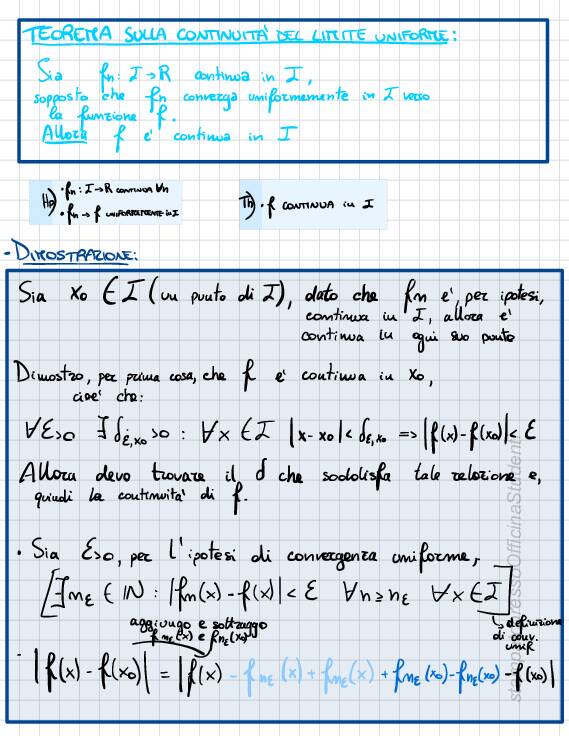 TEOREMA SULLA CONTINUITÀ DEL LIMITE UNIFORME:
Sia fn: I→R continua in I,
supposto che fn converga uniformemente in I verso
la funzione f.
Allora f e' continua in I
Hp) • fn: I→R CONTINUA ∀n
• fn → f UNIFORMEMENTE in I
Th) • f CONTINUA in I
- DIMOSTRAZIONE:
Sia x0 ∈ I (un punto di I), dato che fn e', per ipotesi,
continua in I, allora e'
continua in ogni suo punto
Dimostro, per prima cosa, che f e' continua in x0,
cioe' che:
∀ε>0 ∃δε,x0>0 : ∀x ∈ I |x-x0|<δε,x0 => |f(x)-f(x0)|<ε
Allora devo trovare il δ che soddisfa tale relazione e,
quindi la continuita' di f.
• Sia ε>0, per l'ipotesi di convergenza uniforme,
[∃nε ∈ ℕ : |fn(x) - f(x)| < ε ∀n≥nε ∀x ∈ I]
↳ definizione
di conv.
unif.
aggiungo e sottraggo
fnε(x) e fnε(x0)
• |f(x) - f(x0)| = |f(x) - fnε(x) + fnε(x) + fnε(x0) - fnε(x0) - f(x0)|